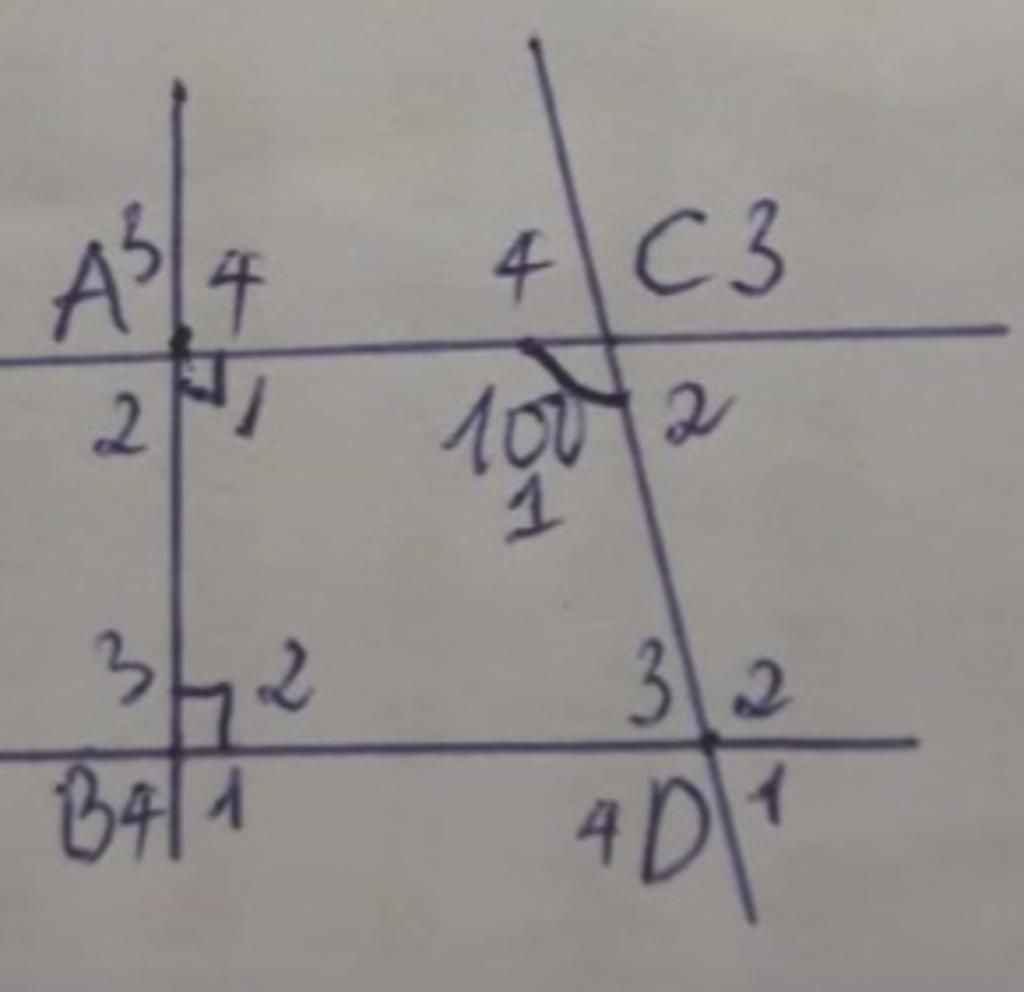 A 3 4 4 C 3
2 1 100 2
1
3 2 3 2
B 4 1 4 D 1